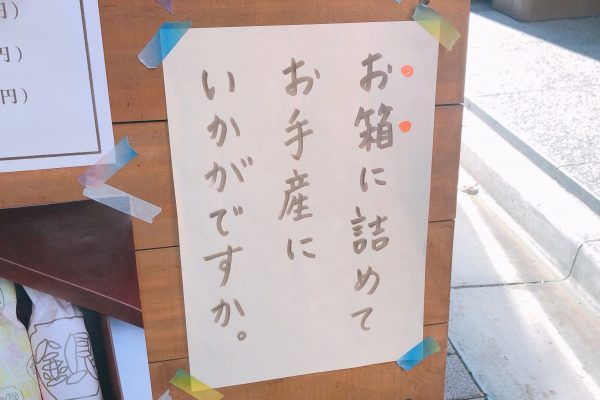 お箱に詰めて
お手産に
いかがですか。
円)
円)
円)